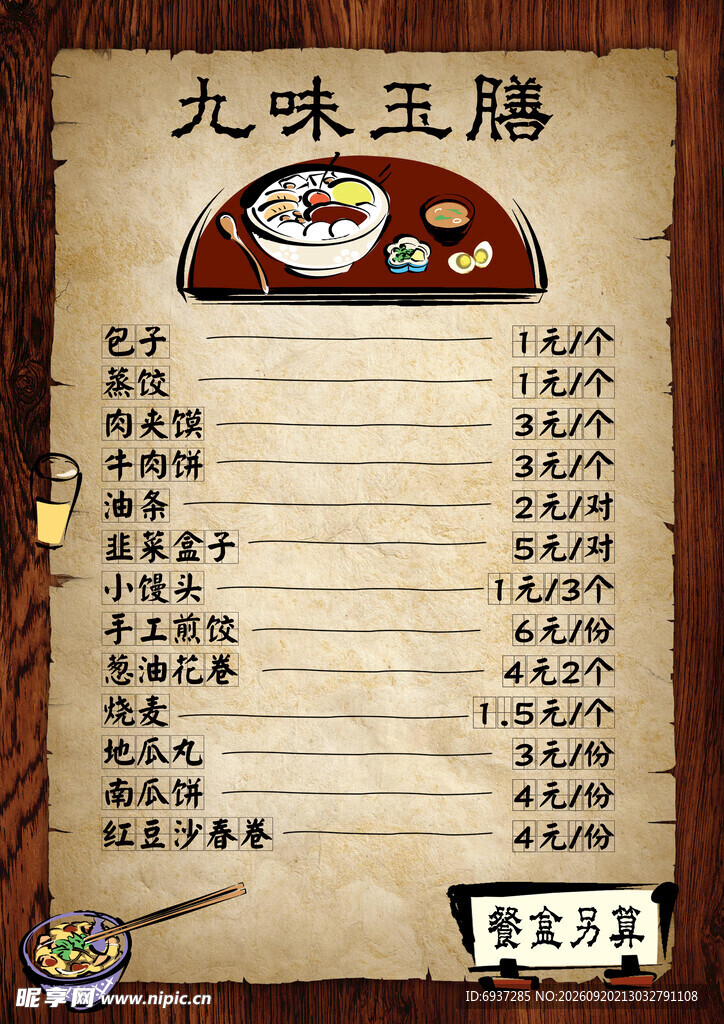 九味玉膳
包子 1元/个
蒸饺 1元/个
肉夹馍 3元/个
牛肉饼 3元/个
油条 2元/对
韭菜盒子 5元/对
小馒头 1元/3个
手工煎饺 6元/份
葱油花卷 4元2个
烧麦 1.5元/个
地瓜丸 3元/份
南瓜饼 4元/份
红豆沙春卷 4元/份
餐盒另算
昵享网 www.nipic.cn
ID:6937285 NO:20260920213032791108